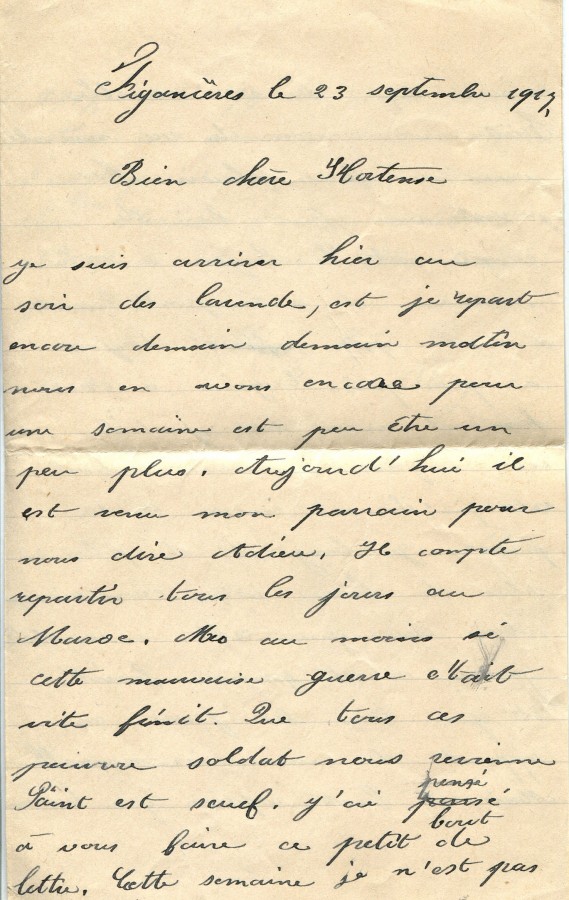 Figanières le 23 septembre 1917,
Bien chère Hortense
je suis arriver hier au
soir des lavende, est je repart
encore demain demain mattin
nous en avons encore pour
une semaine est peu être un
peu plus. Aujourd'hui il
est venu mon parrain pour
nous dire Adieu. Il compte
repartir tous les jours au
Maroc. au moins si
cette mauvaise guerre était
vite finit. Que tous ces
pauvre soldat nous revienne
Saint est seuf. j'ai pensé
à vous faire ce petit bout de
lettre. Cette semaine je n'est pas